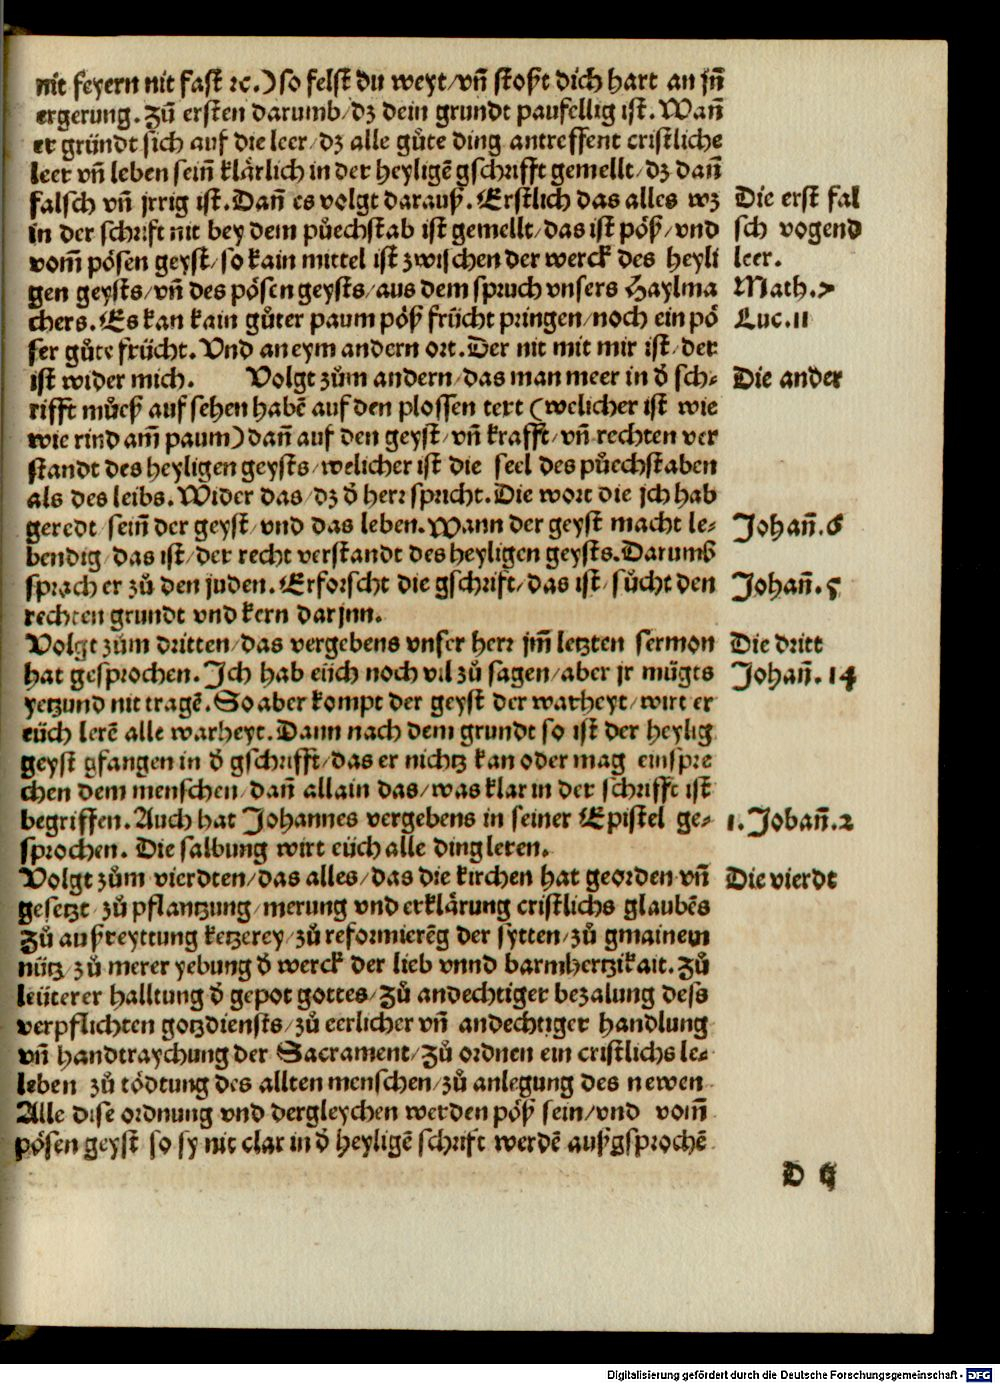 nit feyern nit fast ⁊c.) so felst du weyt/vn̄ stoßt dich hart an jn̄
ergerung. Zů ersten darumb/dz dein grundt paufellig ist. Wan̄
er gründt sich auf die leer/dz alle gůte ding antreffent cristliche
leer vn̄ leben sein̄ klårlich in der heyligē gschrifft gemellt/dz dan̄
falsch vn̄ jrrig ist. Dan̄ es volgt darauß. Erstlich das alles wz
Die erst fal
in der schrift nit bey dem půechstab ist gemellt/das ist pöß/vnd
sch vogend
vom̄ pösen geyst/so kain mittel ist zwischen der werck des heyli
leer.
gen geysts/vn̄ des pösen geysts/aus dem spruch vnsers Haylma
Math.7
chers. Es kan kain gůter paum pöß frücht pringen/noch ein pö
Luc.11
ser gůte frücht. Vnd an eym andern ort. Der nit mit mir ist/der
ist wider mich. Volgt zům andern/das man meer in d̄ sch⸗
Die ander
rifft můeß auf sehen habē auf den plossen text (welicher ist wie
wie rind am̄ paum) dan̄ auf den geyst/vn̄ krafft/vn̄ rechten ver
standt des heyligen geysts/welicher ist die seel des půechstaben
als des leibs. Wider das/dz d̄ herr spricht. Die wort die jch hab
geredt/sein̄ der geyst/vnd das leben. Wann der geyst macht le⸗
Johan̄.6
bendig/das ist/der recht verstandt des heyligen geysts. Darumb
sprach er zů den juden. Erforscht die gschrift/das ist/sůcht den
Johan̄.5
rechten grundt vnd kern darjnn.
Volgt zům dritten/das vergebens vnser herr jm̄ letzten sermon
Die dritt
hat gesprochen. Jch hab eüch noch vil zů sagen/aber jr mügts
Johan̄.14
yetzund nit tragē. So aber kompt der geyst der warheyt/wirt er
eüch lerē alle warheyt. Dann nach dem grundt so ist der heylig
geyst gfangen in d̄ gschrifft/das er nichtz kan oder mag einspre
chen dem menschen/dan̄ allain das/was klar in der schrifft ist
begriffen. Auch hat Johannes vergebens in seiner Epistel ge⸗
1.Johan̄.2
sprochen. Die salbung wirt eüch alle ding leren.
Volgt zům vierdten/das alles/das die kirchen hat georden vn̄
Die vierdt
gesetzt/zů pflantzung/merung vnd erklårung cristlichs glaubēs
Zů außreyttung ketzerey/zů reformierēg der sytten/zů gmainem
nütz/zů merer yebung d̄ werck der lieb vnnd barmhertzikait. Zů
leüterer halltung d̄ gepot gottes/Zů andechtiger bezalung dess
verpflichten gotzdiensts/zů eerlicher vn̄ andechtiger handlung
vn̄ handtraychung der Sacrament/Zů ordnen ein cristlichs le⸗
leben zů tödtung des allten menschen/zů anlegung des newen
Alle dise ordnung vnd dergleychen werden pöß sein/vnd vom̄
pösen geyst so sy nit clar in d̄ heyligē schrift werdē außgsprochē
D ij
Digitalisierung gefördert durch die Deutsche Forschungsgemeinschaft - DFG